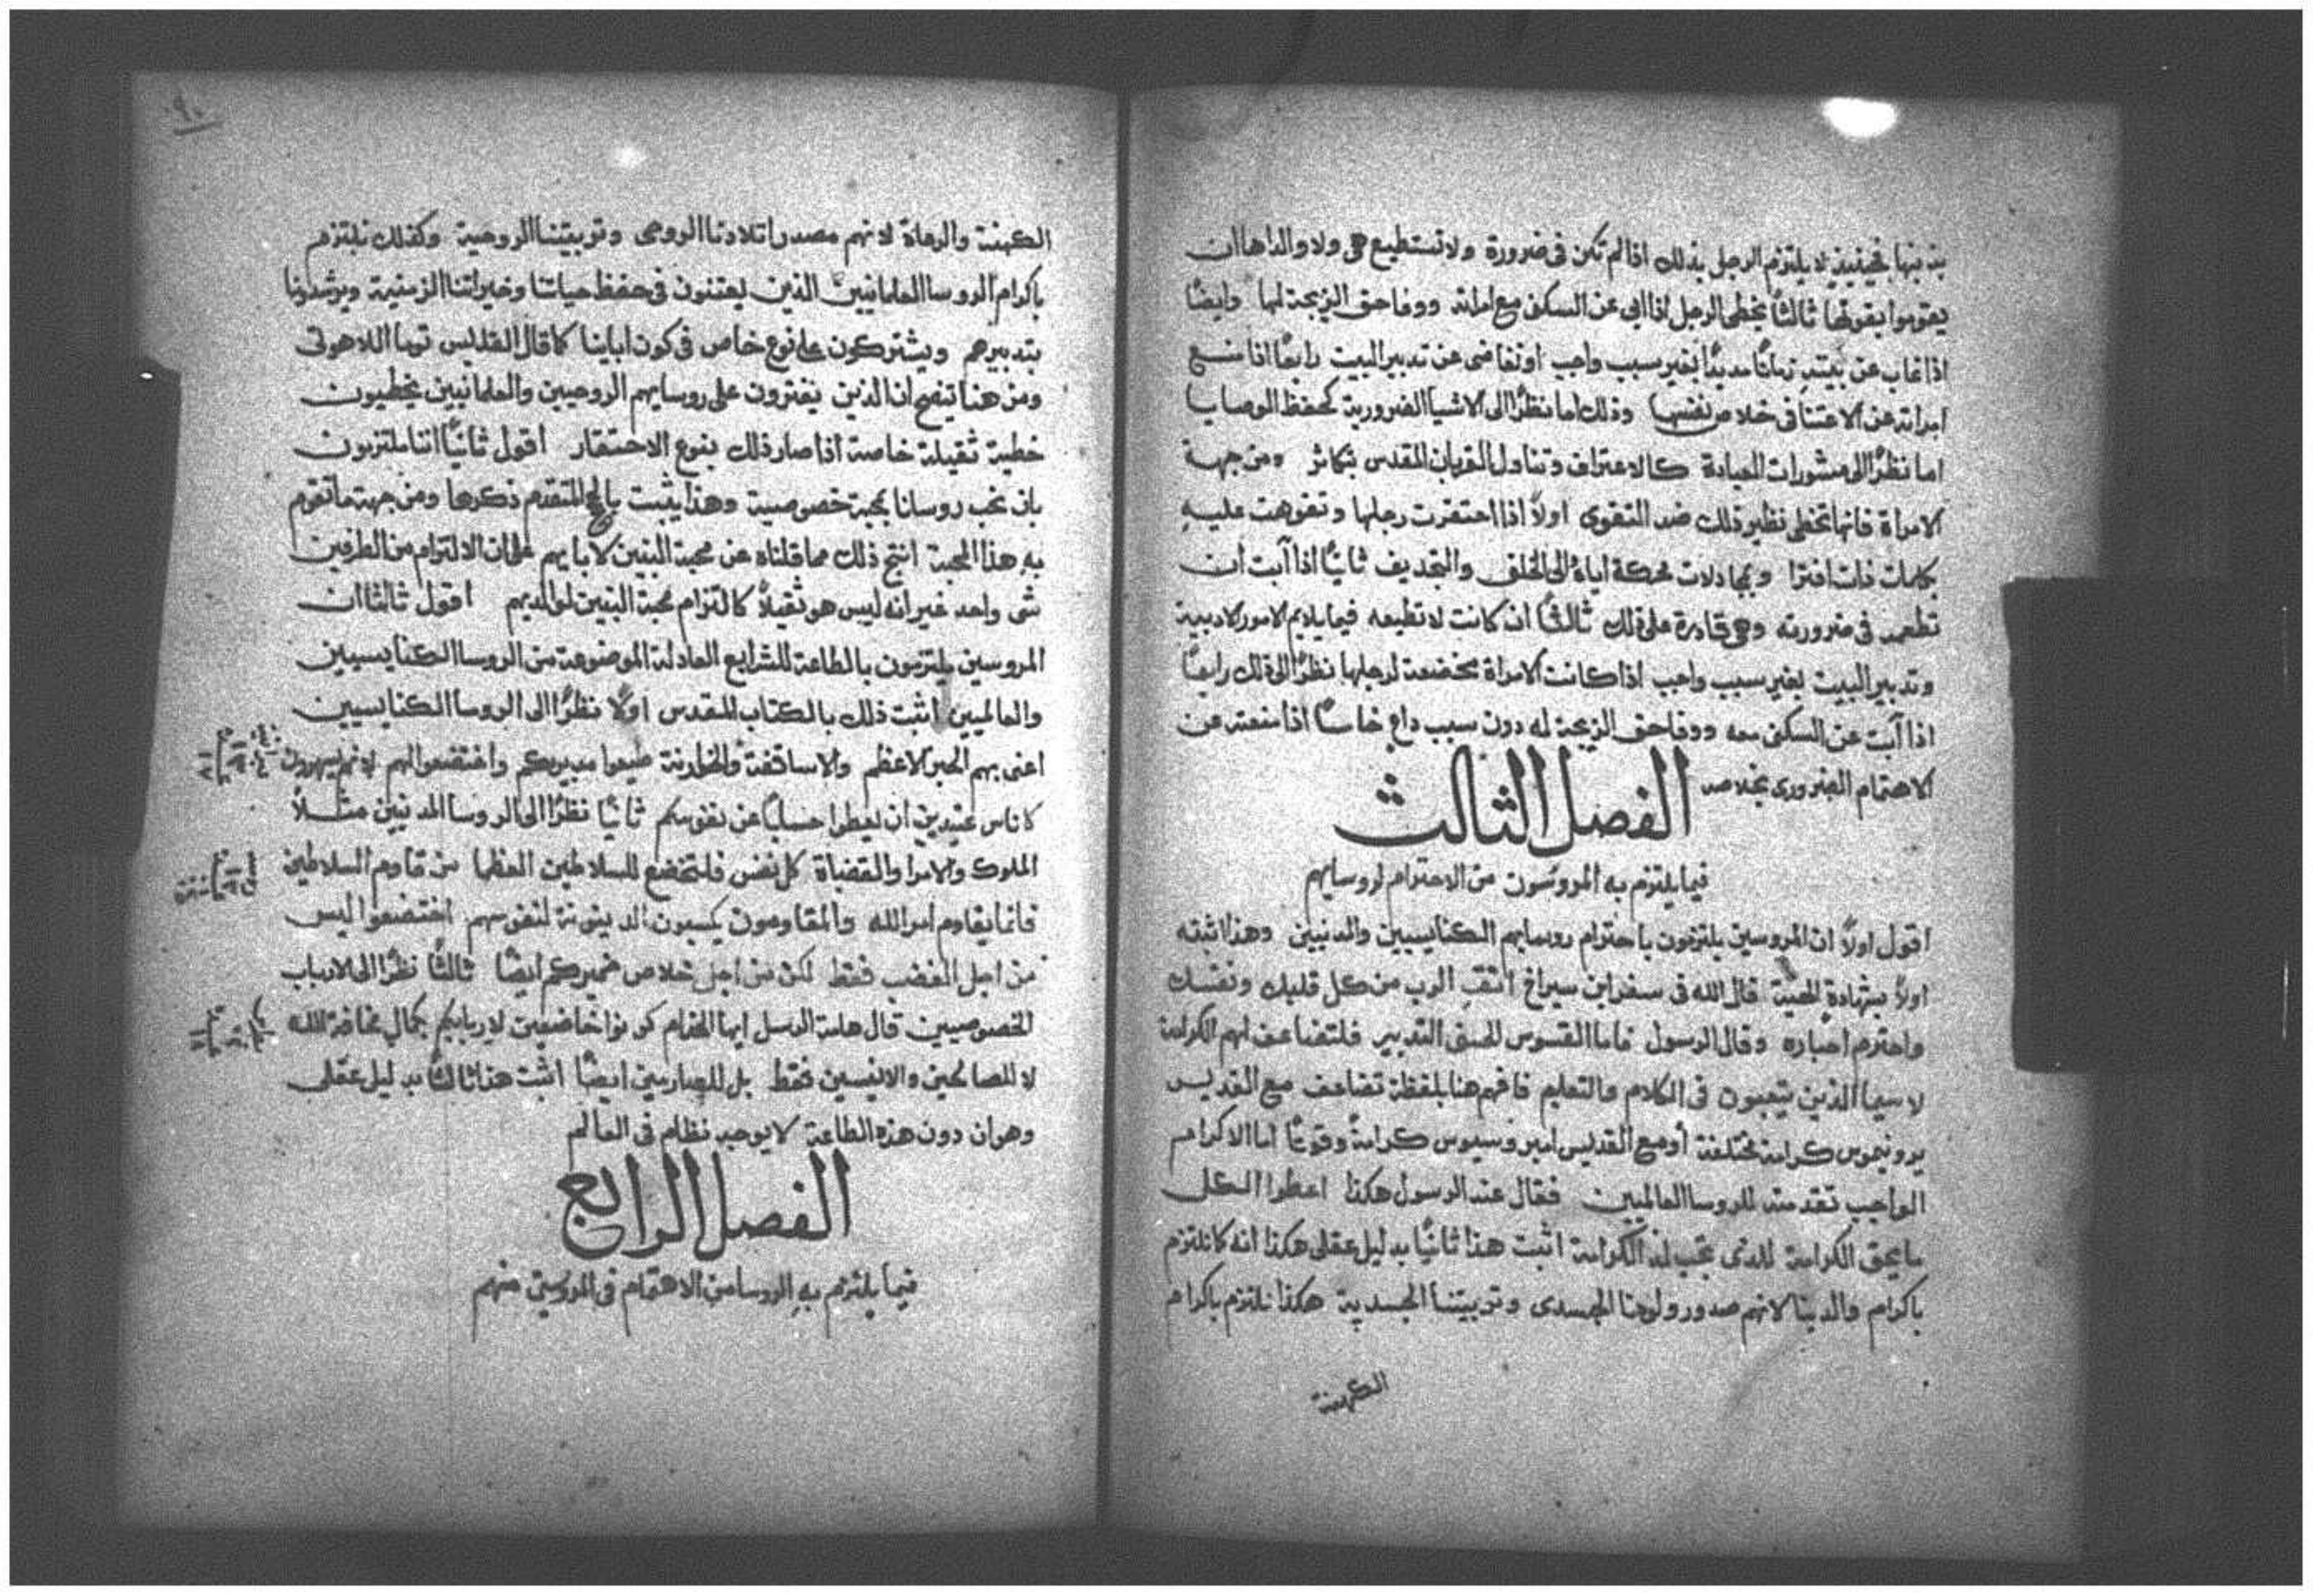 بذنبها فحينيذ لا يلتزم الرجل بذلك اذا لم تكن فى ضرورة ولا تستطيع هى ولا والداها ان
يقوموا بقوتها ثالثًا يخطى الرجل اذا ابى عن السكن مع امراته ووفا حق الزيجة لها وايضًا
اذا غاب عن بيته زمانًا مديدًا بغير سبب واجب او تغاضى عن تدبير البيت رابعًا اذا منع
امراته عن الاعتنا فى خلاص نفسها وذلك اما نظرًا الى الاشيا الضرورية كحفظ الوصايا
اما نظرًا الى مشورات العبادة كالاعتراف وتناول القربان المقدس بتكاثر ومن جهة
الامراة فانها تخطى نظير ذلك ضد التقوى اولًا اذا احتقرت رجلها وتفوهت عليه
بكلمات ذات افترا وبمجادلات محركة اياه الى الحلف والتجديف ثانيًا اذا آبت ان
تطعمه فى ضرورته وهى قادرة على ذلك ثالثًا ان كانت لا تطيعه فيما يلايم الامور الادبية
وتدبير البيت بغير سبب واجب اذا كانت الامراة مخضعة لرجلها نظرًا الى ذلك رابعًا
اذا آبت عن السكن معه ووفا حق الزيجة له دون سبب داع خامسًا اذا منعته عن
الاهتمام الضرورى بخلاصه
الفصل الثالث
فيما يلتزم به المروسون من الاحترام لروسايهم
اقول اولًا ان المروسين يلتزمون باحترام روسايهم الكنايسيين والمدنيين وهذا اثبته
اولًا بشهادة الهية قال الله فى سفر ابن سيراخ اتقِ الرب من كل قلبك ونفسك
واحترم احباره وقال الرسول فاما القسوس الحسنى التدبير فلتضاعف لهم الكرامة
لا سيما الذين يتعبون فى الكلام والتعليم فافهم هنا بلفظة تضاعف مع القديس
يرونيموس كرامة مختلفة أو مع القديس امبروسيوس كرامةً وقوتًا اما الاكرام
الواجب تقدمته للروسا العالميين فقال عنه الرسول هكذا اعطوا الكل
ما يحق الكرامة للذى تجب له الكرامة اثبت هذا ثانيًا بدليل عقلى هكذا انه كما نلتزم
باكرام والدينا لانهم صدور ولودنا الجسدى وتربيتنا الجسدية هكذا نلتزم باكرام
الكهنة
٩٠
الكهنة والرعاة لانهم مصدر اتلادنا الروحى وتربيتنا الروحية وكذلك نلتزم
باكرام الروسا العلمانيين الذين يعتنون فى حفظ حياتنا وخيراتنا الزمنية ويرشدونا
بتدبيرهم ويشتركون على نوع خاص فى كون ابابنا كما قال القديس توما اللاهوتى
ومن هنا يتضح ان الذين يفترون على روسايهم الروحيين والعلمانيين يخطيون
خطية ثقيلة خاصة اذا صار ذلك بنوع الاحتقار اقول ثانيًا اننا ملتزمون
بان نحب روسانا بمحبة خصوصية وهذا يثبت بالحجج المتقدم ذكرها ومن جهة ما تقوم
به هذا المحبة انتج ذلك مما قلناه عن محبة البنين لابايهم على ان الالتزام من الطرفين
شى واحد غير انه ليس هو ثقيلًا كالتزام محبة البنين لوالديهم اقول ثالثًا ان
المروسين يلتزمون بالطاعة للشرايع العادلة الموضوعة من الروسا الكنايسيين
والعالميين اثبت ذلك بالكتاب المقدس اولًا نظرًا الى الروسا الكنايسيين
اعنى بهم الحبر الاعظم والاساقفة والخوارنة طيعوا مدبريكم واخضعوا لهم لانهم يسهرون
كاناس عتيدين ان يعطوا حسابًا عن نفوسكم ثانيًا نظرًا الى الروسا المدنيين مثلًا
الملوك والامرا والقضاة كل نفس فلتخضع للسلاطين العظما من قاوم السلاطين
فانما يقاوم امر الله والمقاومون يكسبون الدينونة لنفوسهم اخضعوا ليس
من اجل الغضب فقط لكن من اجل خلاص ضميركم ايضًا ثالثًا نظرًا الى الارباب
الخصوصيين قال هامة الرسل ايها الخدام كونوا خاضعين لاربابكم بكمال مخافة الله
لا للصالحين والانيسين فقط بل للعارمين ايضًا اثبت هذا ثالثًا بدليل عقلى
وهو ان دون هذه الطاعة لا يوجد نظام فى العالم
الفصل الرابع
فيما يلتزم به الروسا من الاهتمام فى المروسين منهم